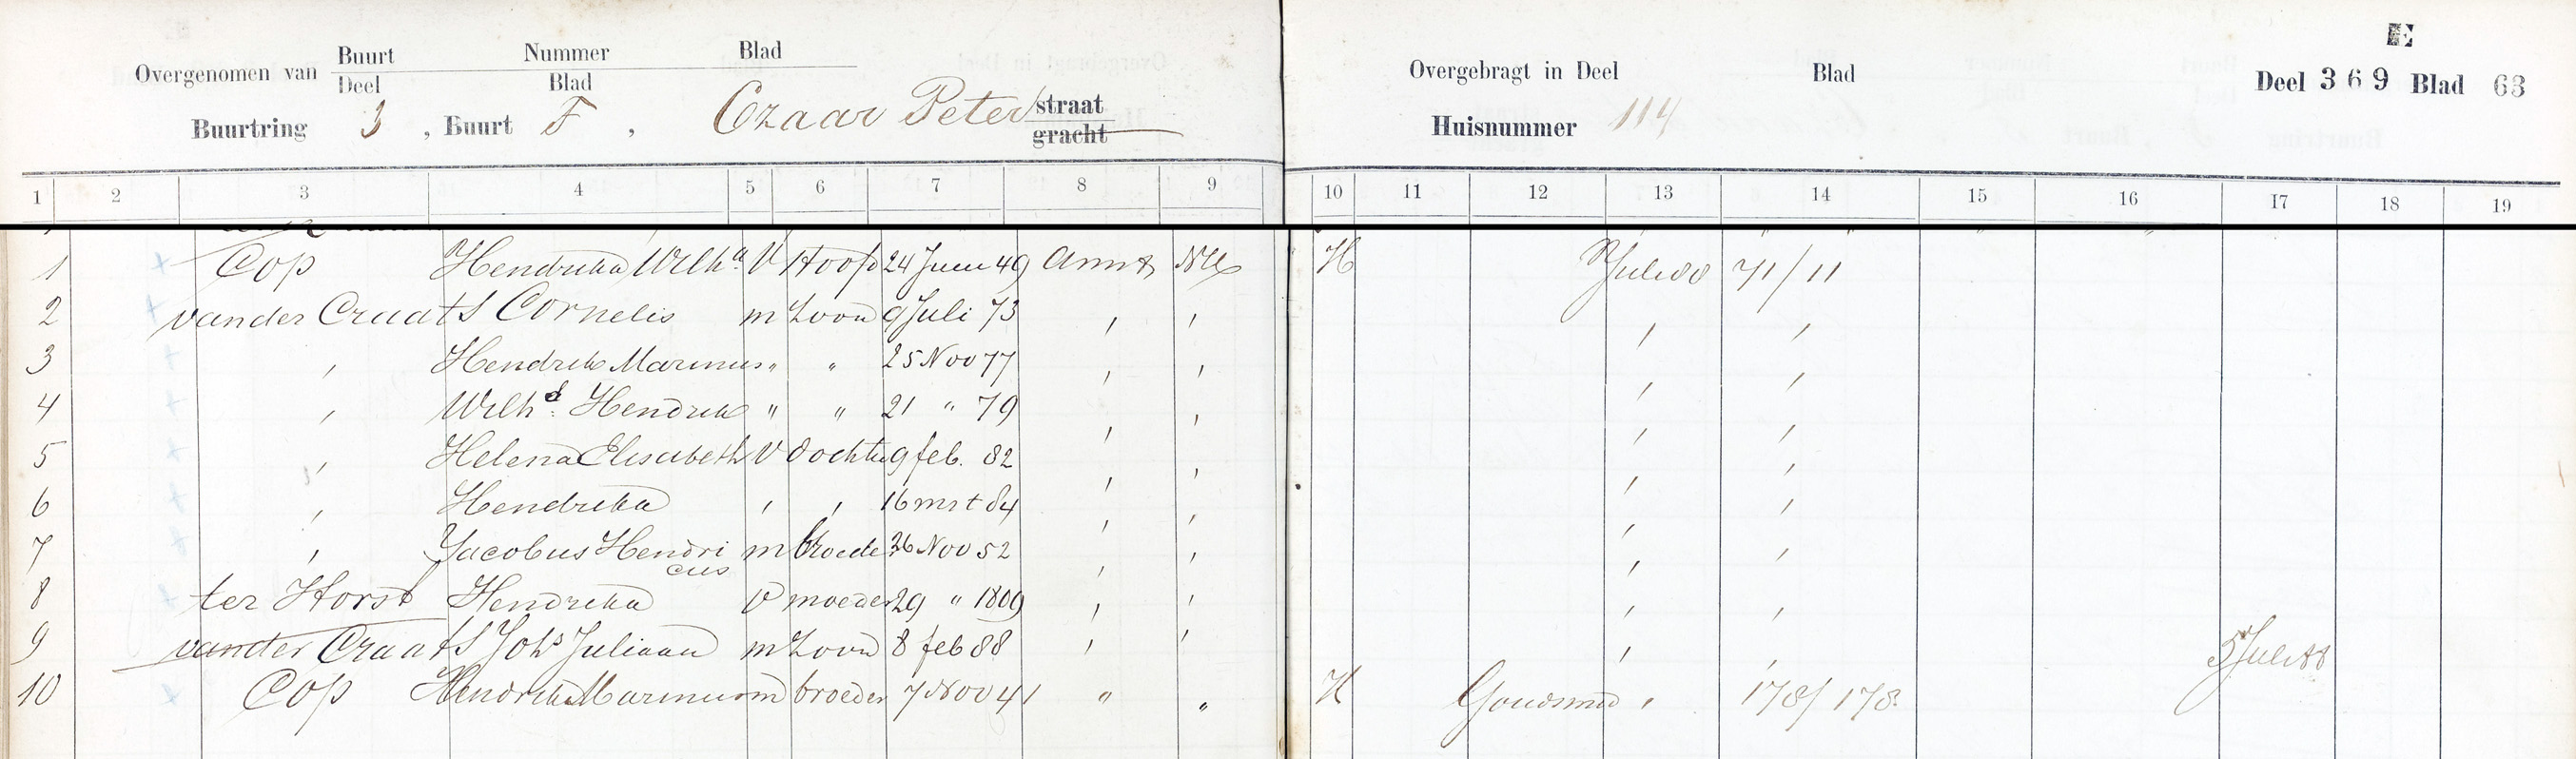 Overgenomen van Buurt Nummer Blad
Deel Blad
Buurtring 3, Buurt F, Czaar Peter straat
gracht
Overgebragt in Deel Blad
Huisnummer 114
E
Deel 369 Blad 63
1 2 3 4 5 6 7 8 9 10 11 12 13 14 15 16 17 18 19
1 Cop Hendrika Wilha V Hoofd 24 Juni 49 Amst NH H Juli 88 71/11
2 van der Craats Cornelis m Zoon 9 Juli 73 , , , ,
3 , Hendrik Marinus " " 25 Nov 77 , , , ,
4 , Wilhs. Hendrik " " 21 " 79 , , , ,
5 , Helena Elisabeth V dochter 9 feb. 82 , , , ,
6 , Hendrika , , 16 mrt 84 , , , ,
7 , Jacobus Hendri m broeder Nov 52 , , , ,
cus
8 ter Horst Hendrika V moeder 29 " 1809 , , , ,
9 van der Craats Johs Juliaan m Zoon 8 feb 88 , , , , 5 Juli 88
10 Cop Hendrik Marinus m broeder 7 Nov 41 " " H Goudsmid , 178/178